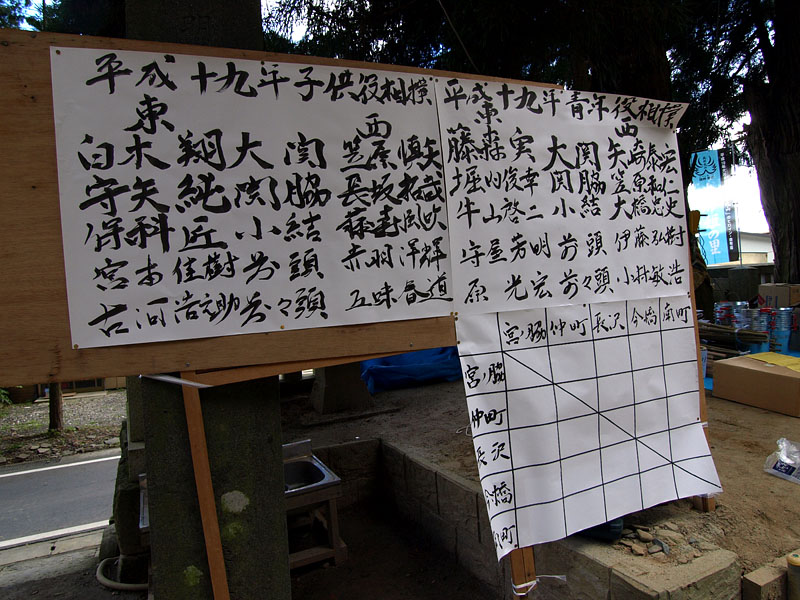 平成十九年子供役相撲
東 西
白木翔大 関 笠原慎矢
守矢純 関脇 長坂拓哉
保科匠 小結 藤森颯
宮本佳樹 前頭 赤羽洋輝
古河浩之助 前々頭 五味春道
平成十九年青年役相撲
東 西
藤森実 大関 矢崎泰宏
堀内俊幸 関脇 笠原和仁
牛山啓二 小結 大橋忠史
守屋芳明 前頭 伊藤弘樹
原光宏 前々頭 小村敏浩
宮ノ脇 仲町 長沢 今橋 南町
宮ノ脇
仲町
長沢
今橋
町